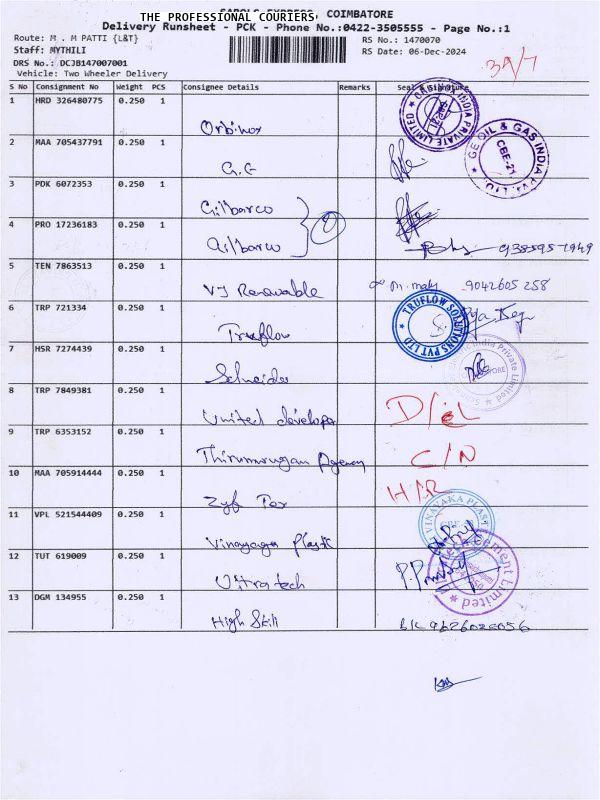 THE PROFESSIONAL COURIERS
COIMBATORE
Delivery Runsheet - PCK - Phone No.:0422-3505555 - Page No.:1
Route: M . M PATTI {L&T}
RS No.: 1470070
Staff: MYTHILI
RS Date: 06-Dec-2024
DRS No.: DCJB147007001
Vehicle: Two Wheeler Delivery
S No Consignment No Weight PCS Consignee Details Remarks Seal & Signature
1 HRD 326480775 0.250 1 Orbinox
2 MAA 705437791 0.250 1 G.G
GE OIL & GAS INDIA PVT. LTD. CBE-21
3 PDK 6072353 0.250 1 Gilbarco
4 PRO 17236183 0.250 1 Gilbarco
5 TEN 7863513 0.250 1 VJ Renewable 9042605 258
6 TRP 721334 0.250 1 Truflow
TRUFLOW SOLUTIONS PVT LTD
7 HSR 7274439 0.250 1 Schneider
India Private Limited
8 TRP 7849381 0.250 1 United developer
9 TRP 6353152 0.250 1 Thirumurugan Agency C/N
10 MAA 705914444 0.250 1
11 VPL 521544409 0.250 1 Vinayaga Plastic
VINAYAKA PLAST
12 TUT 619009 0.250 1 Ultratech
13 DGM 134955 0.250 1 High Skill